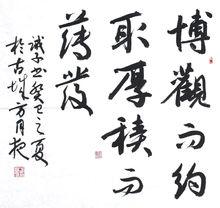 博觀而約
取厚積而
薄發
誠子書癸巳之夏
於古城方月夜